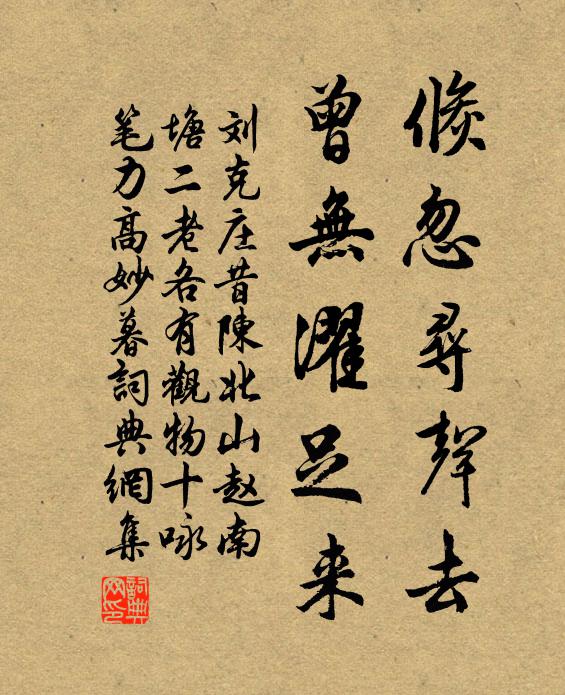 倏忽尋聲去
曾無濯足来
刘克庄昔陳北山赵南
塘二老各有觀物十咏
笔力高妙暮詞典網集
詞典网印